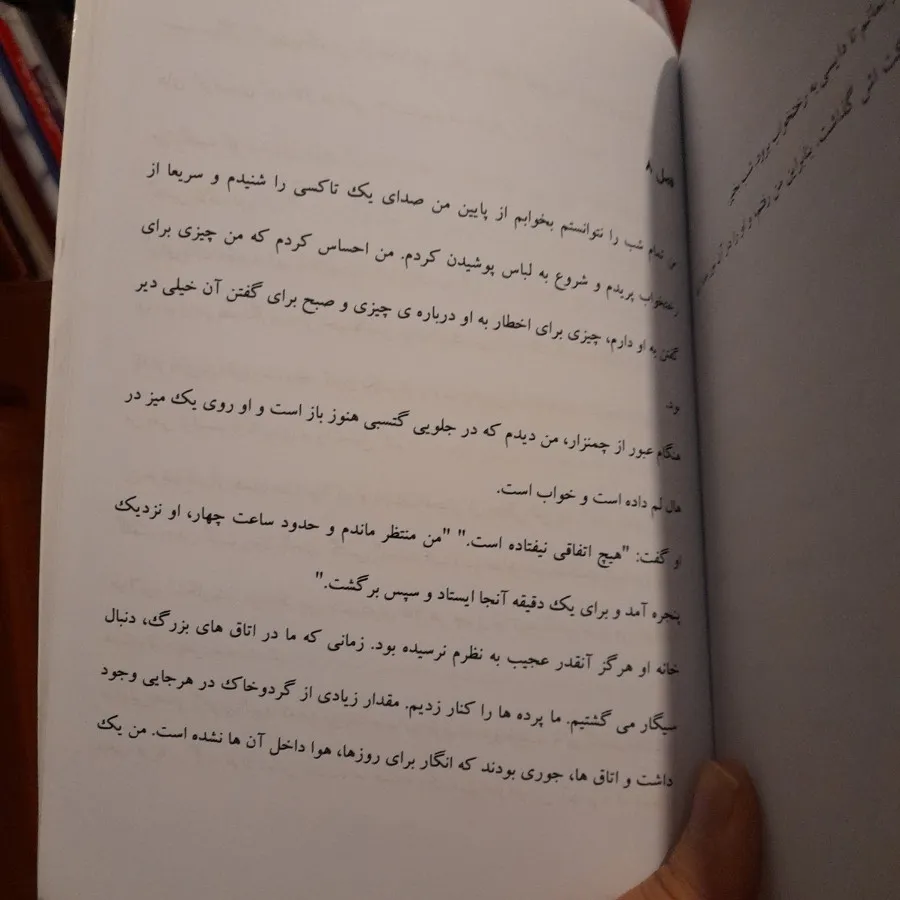 فصل ۸
من تمام شب را نتوانستم بخوابم از پایین من صدای یک تاکسی را شنیدم و سریعا از
رختخواب پریدم و شروع به لباس پوشیدن کردم. من احساس کردم که من چیزی برای
گفتن به او دارم، چیزی برای اخطار به او درباره ی چیزی و صبح برای گفتن آن خیلی دیر
بود.
هنگام عبور از چمنزار، من دیدم که در جلویی گتسبی هنوز باز است و او روی یک میز در
هال لم داده است و خواب است.
او گفت: "هیچ اتفاقی نیفتاده است." "من منتظر ماندم و حدود ساعت چهار، او نزدیک
پنجره آمد و برای یک دقیقه آنجا ایستاد و سپس برگشت."
خانه او هرگز آنقدر عجیب به نظرم نرسیده بود. زمانی که ما در اتاق های بزرگ، دنبال
سیگار می گشتیم. ما پرده ها را کنار زدیم. مقدار زیادی از گردوخاک در هرجایی وجود
داشت و اتاق ها، جوری بودند که انگار برای روزها، هوا داخل آن ها نشده است. من یک
تا دایسی به رختخواب برود
گذاشت. بنابراین من رفتم و او را در آن